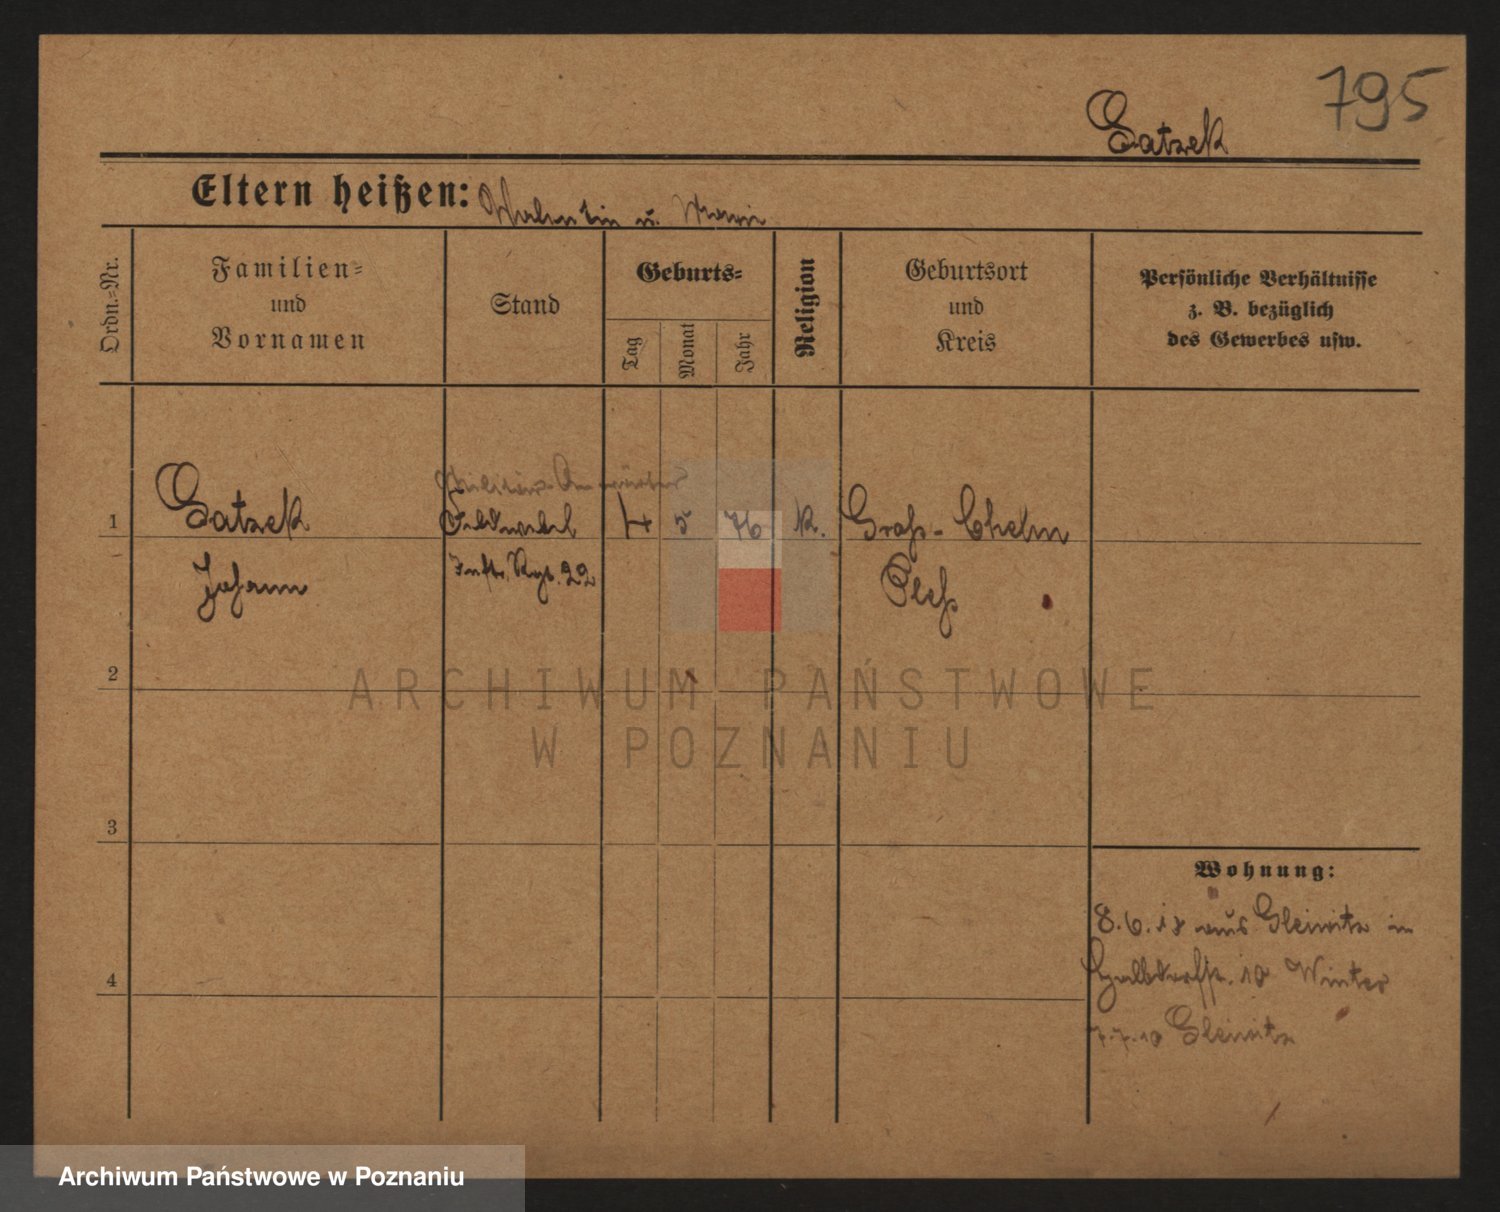 795
Gatzek
Eltern heißen: Valentin u. Marie
Ordn.=Nr.
Familien=
und
Vornamen
Stand
Geburts=
Tag
Monat
Jahr
Religion
Geburtsort
und
Kreis
Persönliche Verhältnisse
z. B. bezüglich
des Gewerbes usw.
Militär-Anwärter
1 Gatzek Feldwebel 4 5 76 K. Groß-Chelm
Johann Inftr. Rgt. 22 Pleß
2
3
4
Wohnung:
8.6.18 aus Gleiwitz in
10 Winter
7.7.10 Gleiwitz
ARCHIWUM PAŃSTWOWE
W POZNANIU
Archiwum Państwowe w Poznaniu